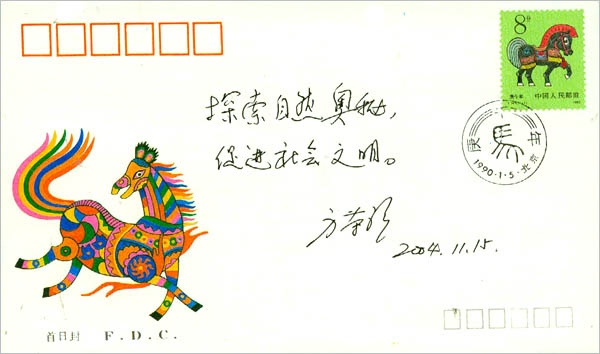 8分
庚午年
中国人民邮政
探索自然奥秘，
促进社会文明。
庚 年
1990·1·5·北京
方荣
2004.11.15.
首日封 F.D.C.